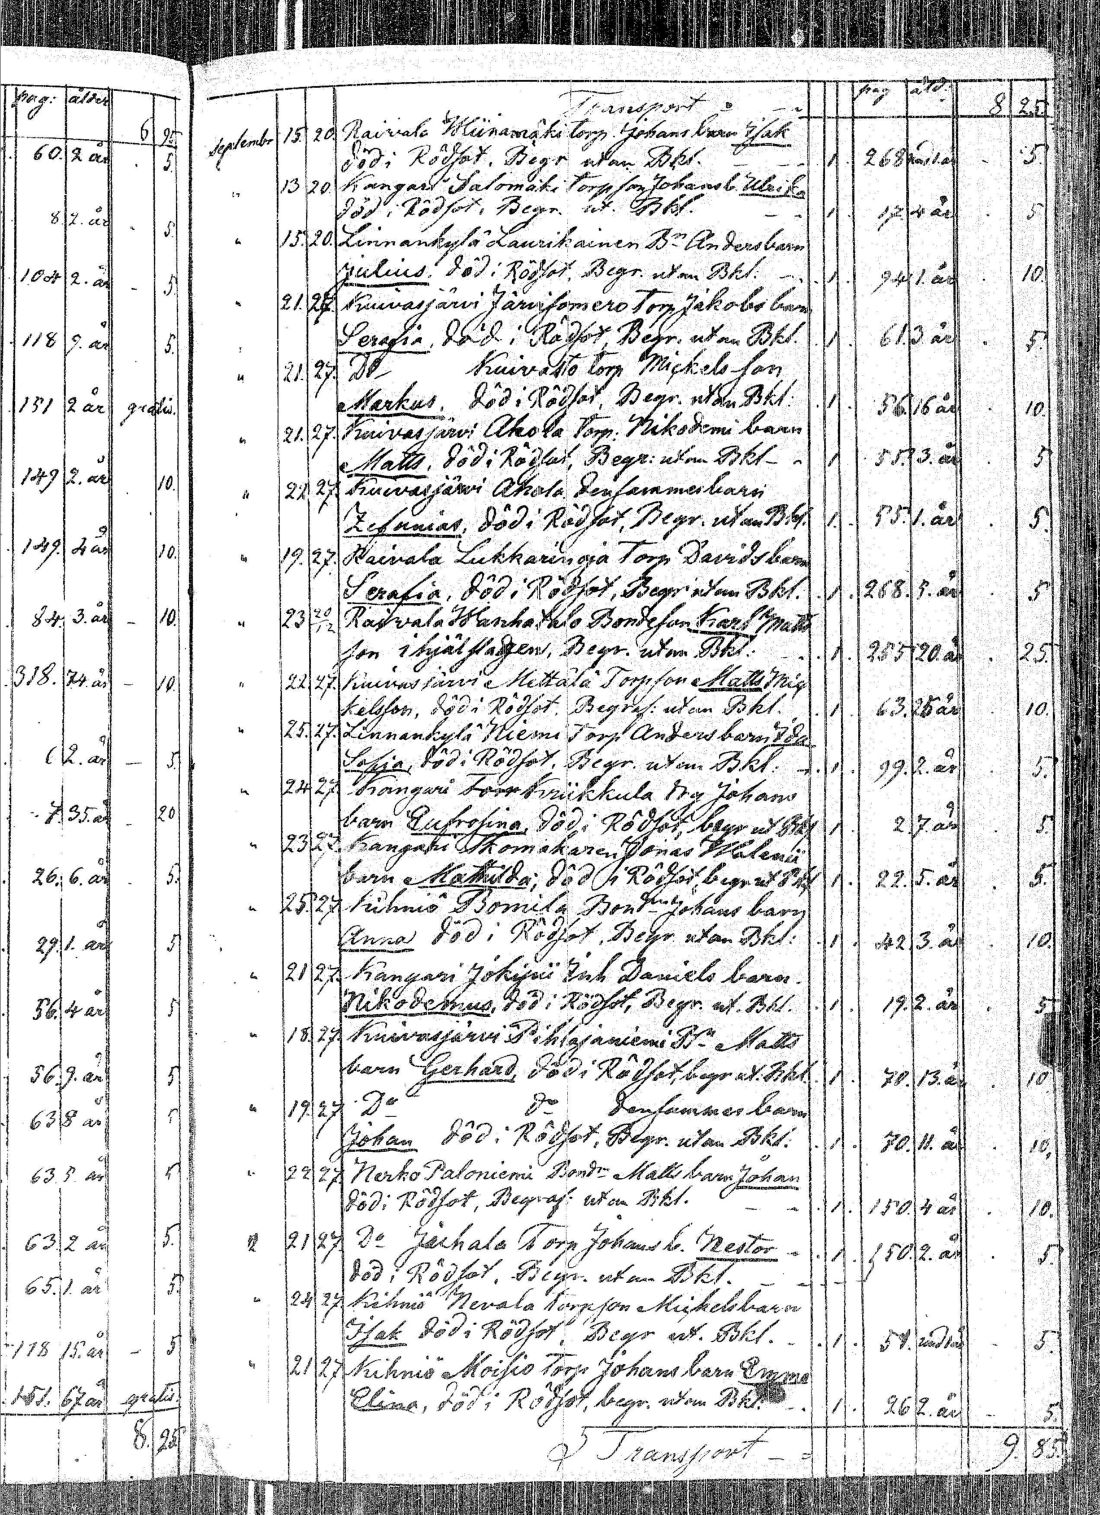 pag: ålder
6 95
60. 2 år 5
8. 2. år 5.
104 2. år 5
118 9. år 5.
151 2 år gratis.
149 2. år 10.
149. 4 år 10.
84. 3. år 10.
318. 74 år 10
2. år 5.
7. 35. år 20
26. 6. år 5.
29. 1. år 5
56. 4 år 5
56. 9. år 5
63 8 år
63. 5. år 5
63. 2 år 5.
65. 1. år 5.
178 15. år 5
151. 67 år gratis.
8. 25
Transport pag åld. 8 25.
September 15. 20. Raivala Miinamäki torp. Johans barn Isak
död i Rödsot. Begr utan Bkl. 1. 268 5
" 13 20. Kangari Salomäki Torpson Johans b. Ulrika
död i Rödsot. Begr. ut. Bkl. 1. 17. 4 år 5
" 15. 20. Linnankylä Laurikainen Bn Anders barn
Julius. död i Rödsot, Begr. utan Bkl. 1. 94 1. år 10.
" 21. 27. Kuivasjärvi Järvisomero Torp Jakobs barn
Serafia, död i Rödsot, Begr. utan Bkl. 1. 61. 3. år 5.
" 21. 27. Do Kuivasto torp Mickels son
Markus. död i Rödsot, Begr. utan Bkl. 1. 56. 16 år 10.
" 21. 27. Kuivasjärvi Ahola Torp: Nikodemi barn
Matts. död i Rödsot, Begr: utan Bkl 1. 55. 3. år 5
" 22 27. Kuivasjärvi Ahola densammes barn
Zefanias, död i Rödsot, Begr. utan Bkl. 1. 55. 1. år 5.
" 19. 27. Raivala Lukkarinoja Torp Davids barn
Serafia, död i Rödsot, Begr utan Bkl. 1. 268. 5. år 5
" 23 Raivala Wanhatalo Bondeson Karl Matts
son ihjälslagen, Begr. utan Bkl: 1. 255 20. år 25.
" 22. 27. Kuivasjärvi Mettälä Torpson Matts Mic
kelsson, död i Rödsot. Begraf: utan Bkl. 1. 63. år 10.
" 25. 27. Linnankylä Niemi Torp Anders barn Ida
Sofia, död i Rödsot. Begr. utan Bkl: 1. 99. 2. år 5.
" 24 27. Kangari Kriikkula Johans
barn Eufrosina, död i Rödsot, begr ut Bkl 1. 2. 7 år 5.
" 23 27. Kangari Skomakaren Jonas
barn Mathilda; död i Rödsot, begr ut Bkl 1. 22. 5. år 5.
" 25. 27. Kihniö Bomila Bonden Johans barn
Anna död i Rödsot, Begr. utan Bkl: 1. 42. 3. år 10.
" 21 27. Kangari Jokipii Inh Daniels barn.
Nikodemus, död i Rödsot, Begr. ut. Bkl. 1. 19. 2. år 5
" 18. 27. Kuivasjärvi Pihlajaniemi Bn Matts
barn Gerhard, död i Rödsot, begr ut. Bkl. 1. 70. 13. år 10
" 19. 27 Do do densammes barn
Johan död i Rödsot, Begr. utan Bkl: 1. 70. 11. år 10.
" 22 27. Nerko Paloniemi Bonden Matts barn Johan
död i Rödsot, Begraf: utan Bkl. 1. 150. 4 år 10.
" 21 27. Do Jäihälä Torp Johans b. Nestor 1. 150. 2. år 5.
död i Rödsot, Begr. utan Bkl.
" 24 27. Kihniö Nevala torpson Mickels barn
Isak död i Rödsot, Begr ut. Bkl. 1. 5.
" 21 27. Kihniö Moisio Torp Johans barn Emma
Elina, död i Rödsot, begr. utan Bkl: 1. 26 2. år 5.
Transport 9. 85.